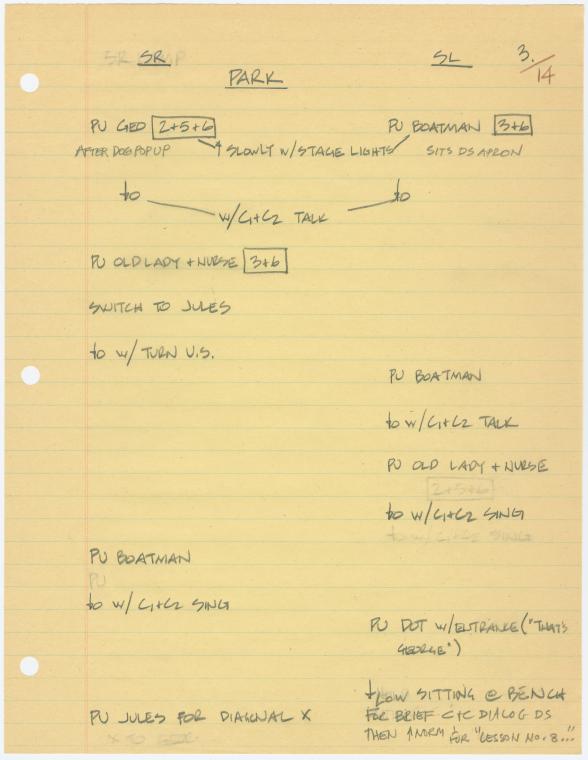 SR SL 3./14
PARK
PU GEO 2+5+6 PU BOATMAN 3+6
AFTER DOG POP UP ↑ SLOWLY W/STAGE LIGHTS SITS DS APRON
to to
W/C1+C2 TALK
PU OLD LADY + NURSE 3+6
SWITCH TO JULES
to w/ TURN U.S.
PU BOATMAN
to w/C1+C2 TALK
PU OLD LADY + NURSE
2+5+6
to w/C1+C2 SING
to w/C1+C2 SING
PU BOATMAN
PU
to w/ C1+C2 SING
PU DOT W/ENTRANCE ("THAT'S
GEORGE")
SITTING @ BENCH
FOR BRIEF DIALOG DS
PU JULES FOR DIAGNAL X
THEN ↑ NORM FOR "LESSON NO. 8..."
X TO